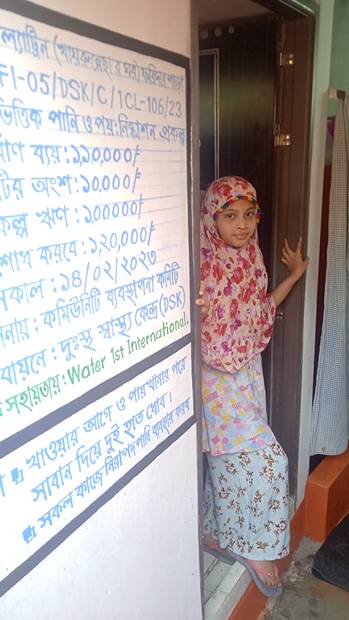 ল্যাট্রিন (খায়রুন্নেছা'র ঘর)
FI-05/DSK/C/1CL-106/23
ভিত্তিক পানি ও পয়ঃনিষ্কাশন প্রকল্প
র্মাণ ব্যয় : ১,১০,০০০/-
টির অংশ : ১০,০০০/-
কল্প ঋণ : ১০০০০০/-
শোধ করবে : ১২০,০০০/-
নকাল : ১৪/০২/২০২৩
নায় : কমিউনিটি ব্যবস্থাপনা কমিটি
বায়নে : দুঃস্থ স্বাস্থ্য কেন্দ্র (DSK)
সহায়তায় : Water 1st International.
খাওয়ার আগে ও পায়খানার পরে
সাবান দিয়ে দুই হাত ধোব।
সকল কাজে নিরাপদ পানি ব্যবহার করব